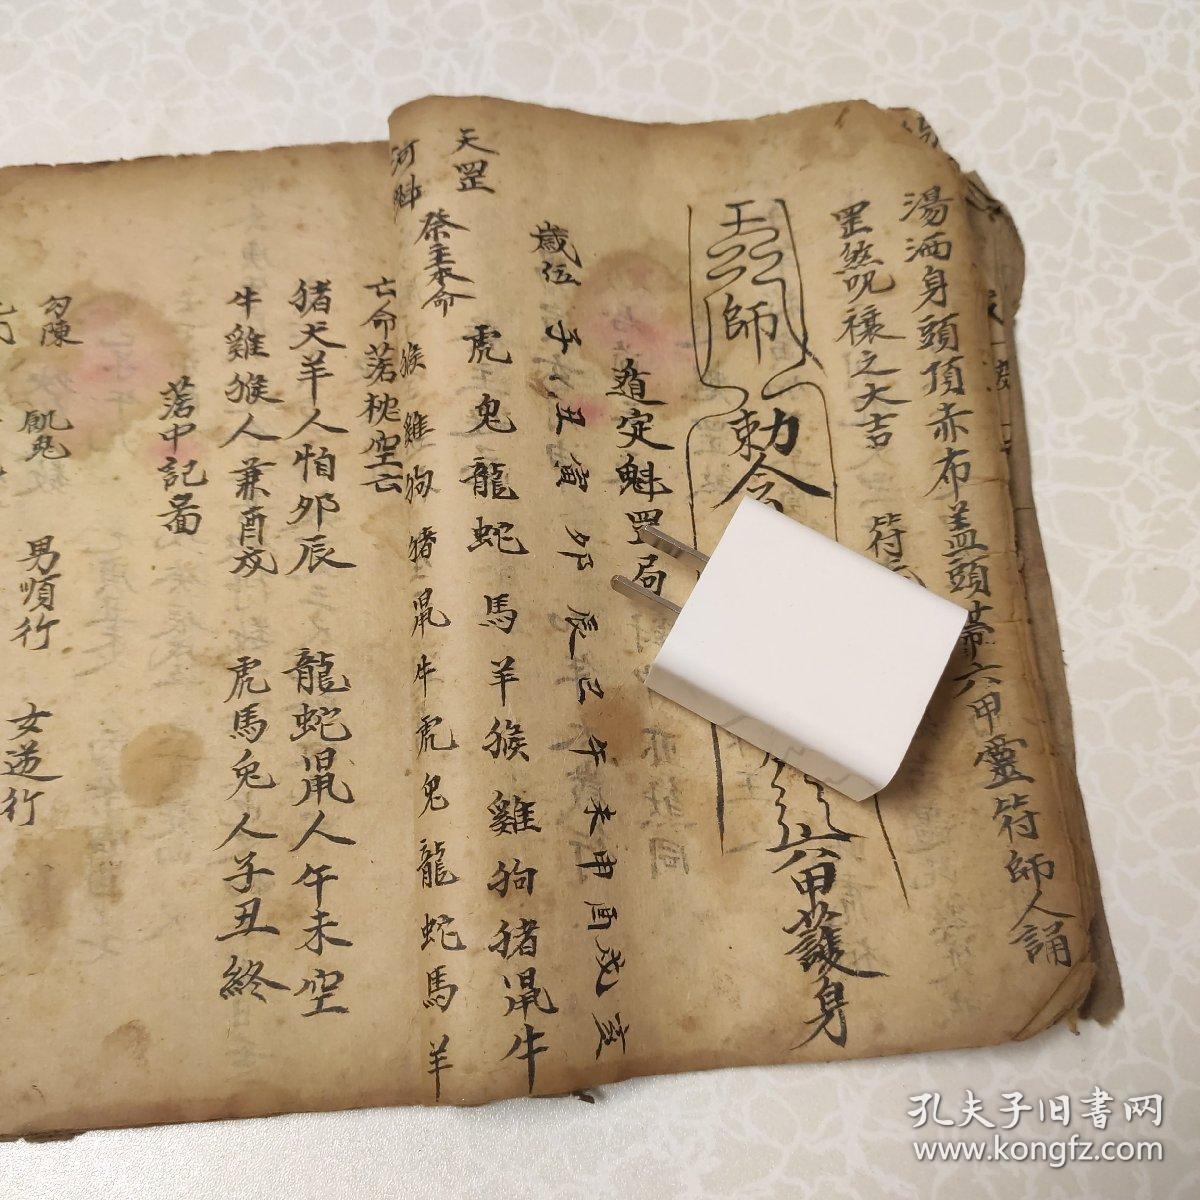 湯洒身頭頂赤布盖頭帶六甲靈符師人誦
罡煞咒禳之大吉
符式
王 師 勅令 六甲護身
遁定魁罡局
歲位 子 丑 寅 卯 辰 巳 午 未 申 酉 戌 亥
天罡 虎 兔 龍 蛇 馬 羊 猴 雞 狗 猪 鼠 牛
祭主本命
河魁 猴 雞 狗 猪 鼠 牛 虎 兔 龍 蛇 馬 羊
亡命落枕空云
猪犬羊人怕卯辰 龍蛇鼠人午未空
牛雞猴人兼酉戌 虎馬兔人子丑終
落中記啚
勾陳 男順行 女逆行
孔夫子旧書网
www.kongfz.com